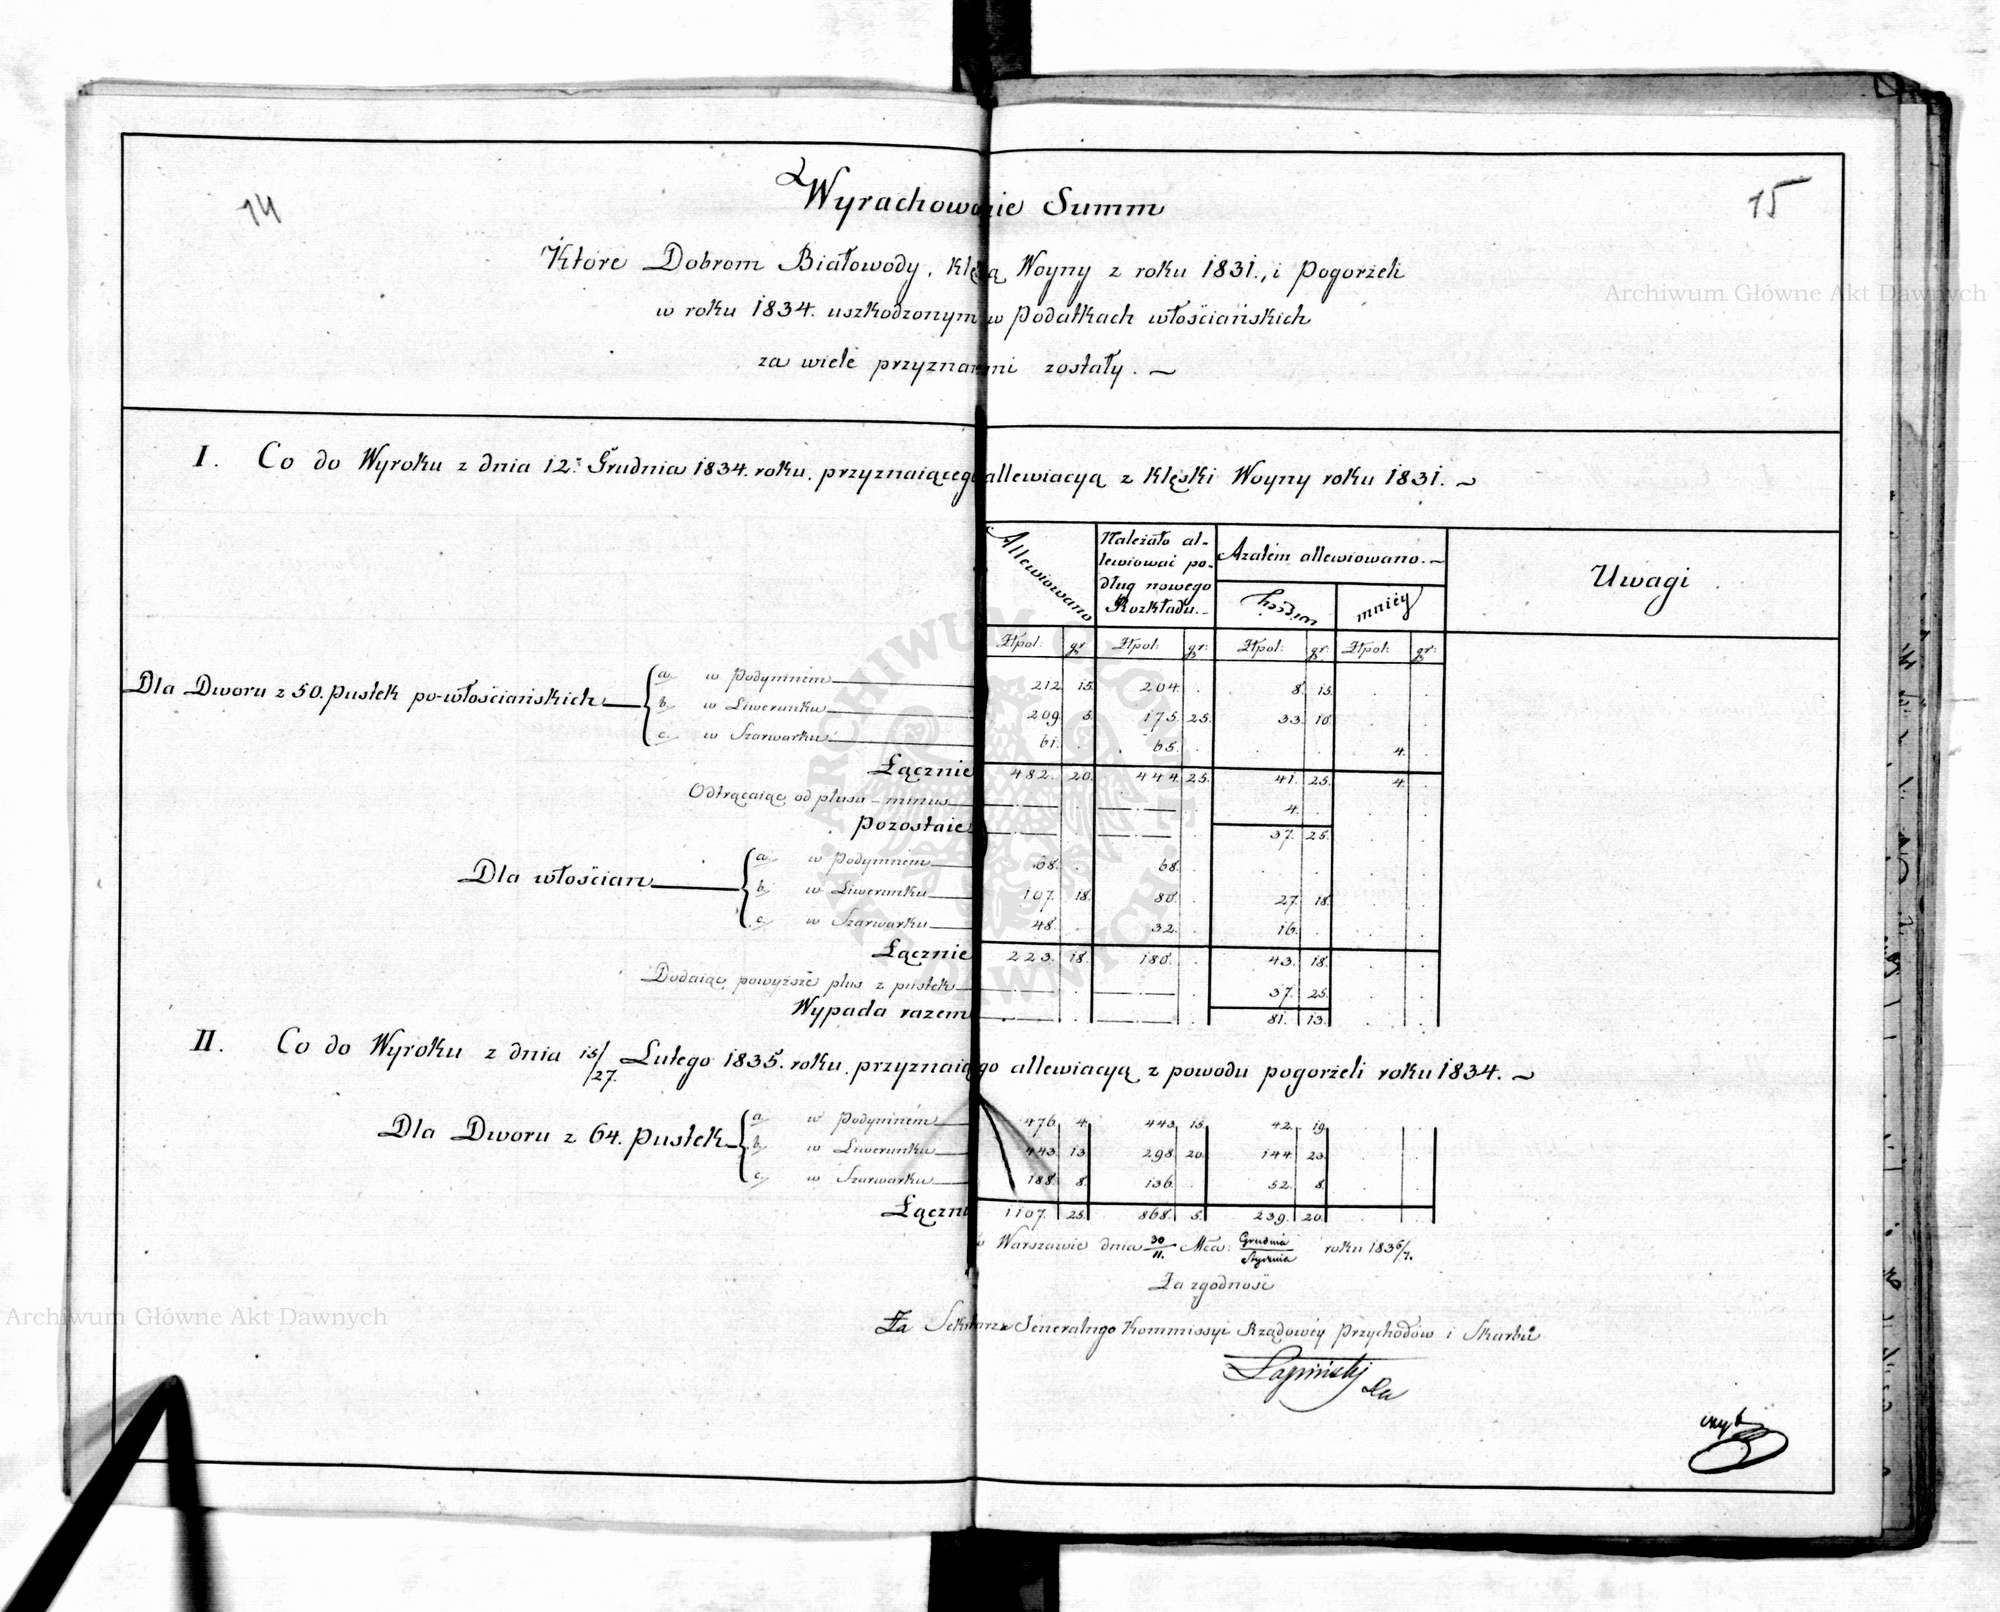 14
15
Wyrachowanie Summ
Które Dobrom Białowody, klęską Woyny z roku 1831., i Pogorzeli
w roku 1834. uszkodzonym w Podatkach włościańskich
za wiele przyznanemi zostały. ~
I. Co do Wyroku z dnia 12. Grudnia 1834. roku, przyznaiącego allewiacyą z klęski Woyny roku 1831. ~
Allewiowano
Należało al-
lewiować po-
dług nowego
Rozkładu.
Azatém allewiowano. ~
więcéy
mniéy
Uwagi
Złpol: gr. Złpol: gr: Złpol: gr: Złpol: gr:
Dla Dworu z 50. pustek po-włościańskich
a. w Podymném 212. 15. 204. . 8. 15. . .
b. w Liwerunku 209. 5. 175. 25. 33. 10. . .
c. w Szarwarku 61. . 65. . . . 4. .
Łącznie 482. 20. 444. 25. 41. 25. 4. .
Odtrącaiąc od plusu – minus 4.
Pozostaie 37. 25.
Dla włościan
a. w Podymném 68. . 68. . . . . .
b. w Liwerunku 107. 18. 80. . 27. 18. . .
c. w Szarwarku 48. . 32. . 16. . . .
Łącznie 223. 18. 180. . 43. 18. . .
Dodaiąc powyższe plus z pustek 37. 25.
Wypada razem 81. 13.
II. Co do Wyroku z dnia 15/27. Lutego 1835. roku, przyznaiącego allewiacyą z powodu pogorzeli roku 1834. ~
Dla Dworu z 64. Pustek
a. w Podymném 476. 4. 443. 15. 42. 19. . .
b. w Liwerunku 443. 13. 298. 20. 144. 23. . .
c. w Szarwarku 188. 8. 136. . 52. 8. . .
Łączni 1107. 25. 868. 5. 239. 20. . .
w Warszawie dnia 30/11. Mca: Grudnia/Stycznia roku 1836/7.
Za zgodność
Za Sekretarza Jeneralnego Kommissyi Rządowéy Przychodów i Skarbu
Łapiński
Archiwum Główne Akt Dawnych
Archiwum Główne Akt Dawnych
ARCHIWUM GŁÓWNE AKT DAWNYCH